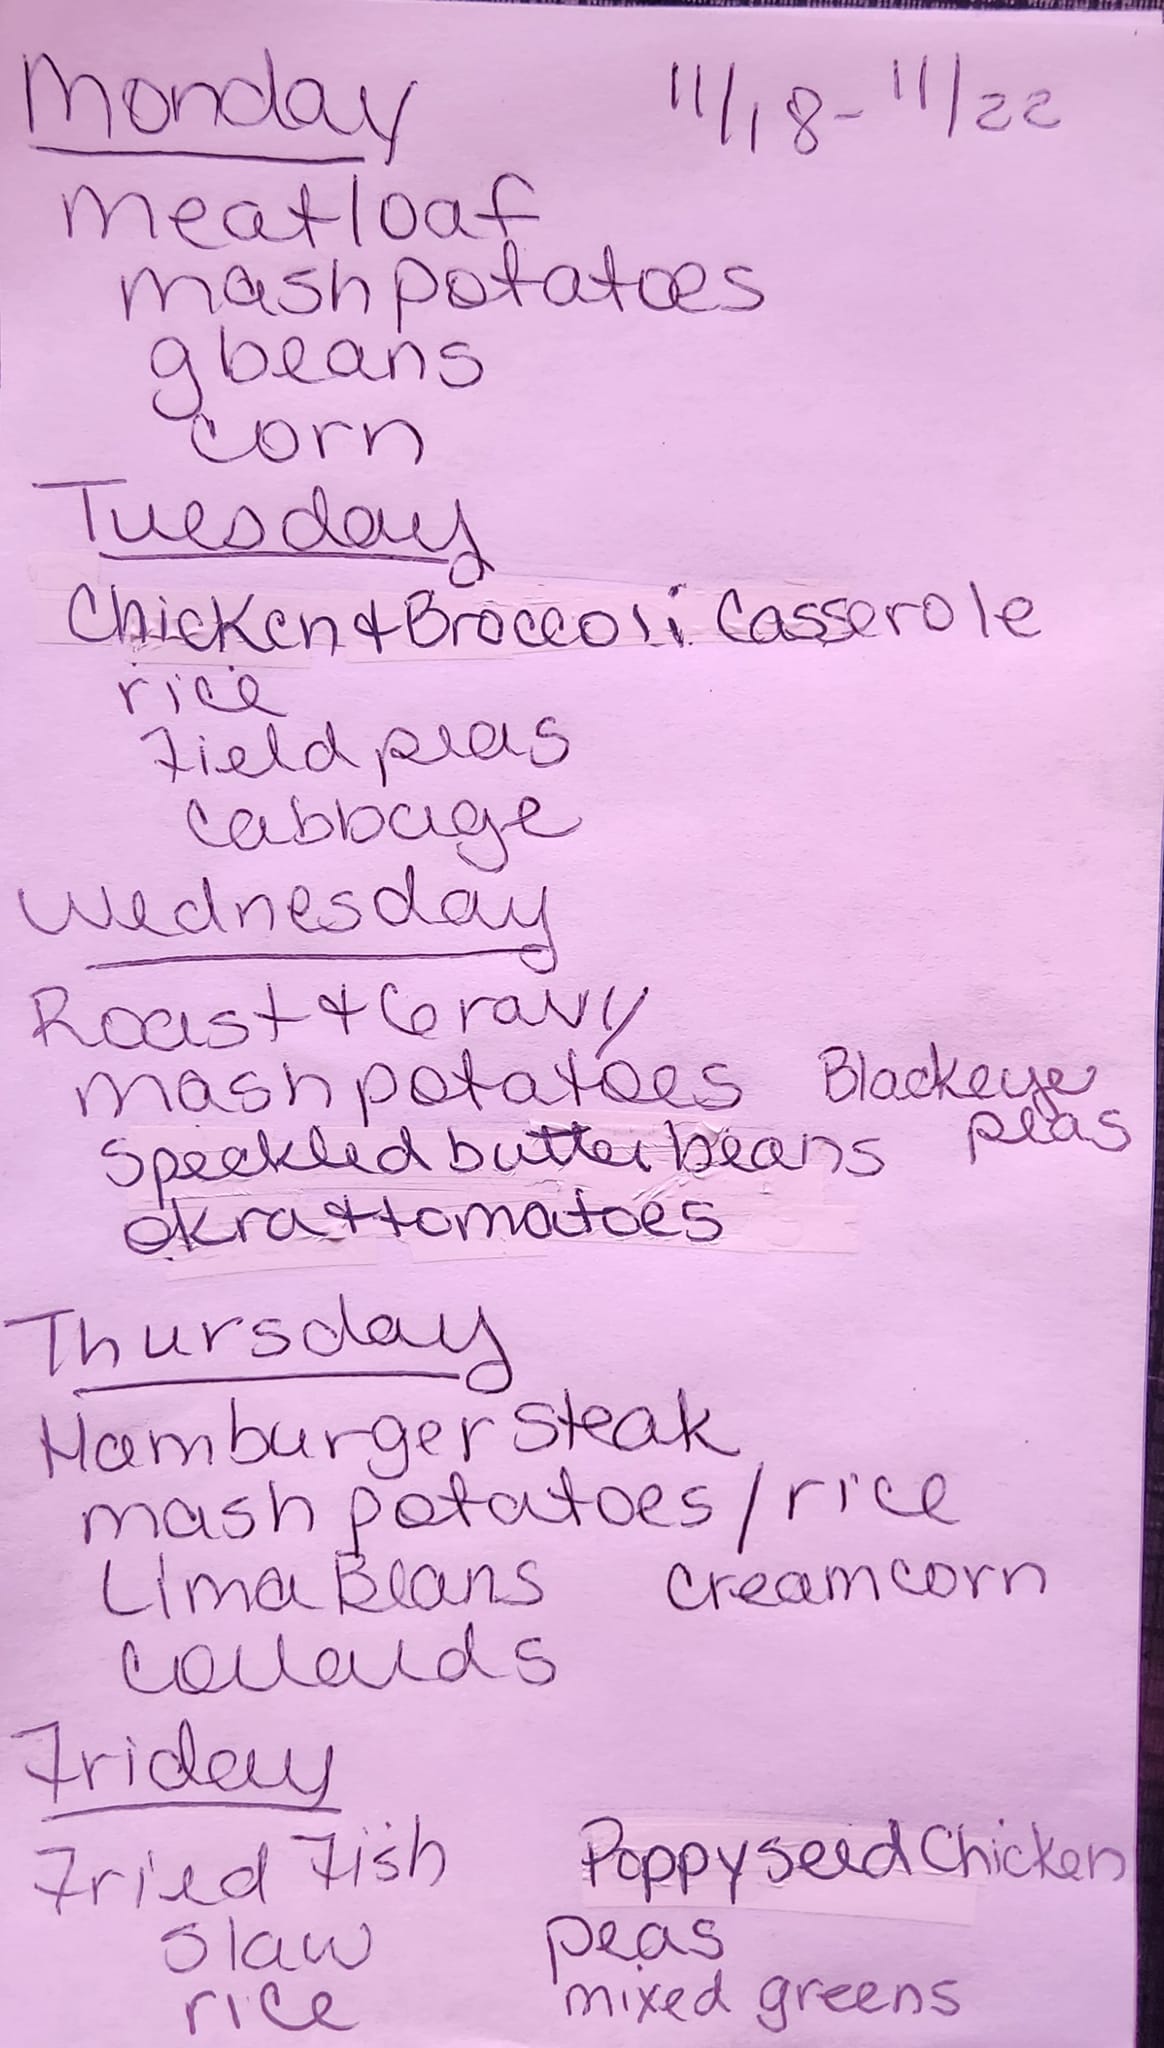 Monday 11/18-11/22
meatloaf
mash potatoes
g beans
corn
Tuesday
Chicken & Broccoli Casserole
rice
Field peas
cabbage
Wednesday
Roast & Gravy
mash potatoes Blackeye
peas
Speckled butter beans
okra & tomatoes
Thursday
Hamburger Steak
mash potatoes / rice
Lima Beans creamcorn
collards
Friday
Fried Fish Poppyseed Chicken
slaw peas
rice mixed greens